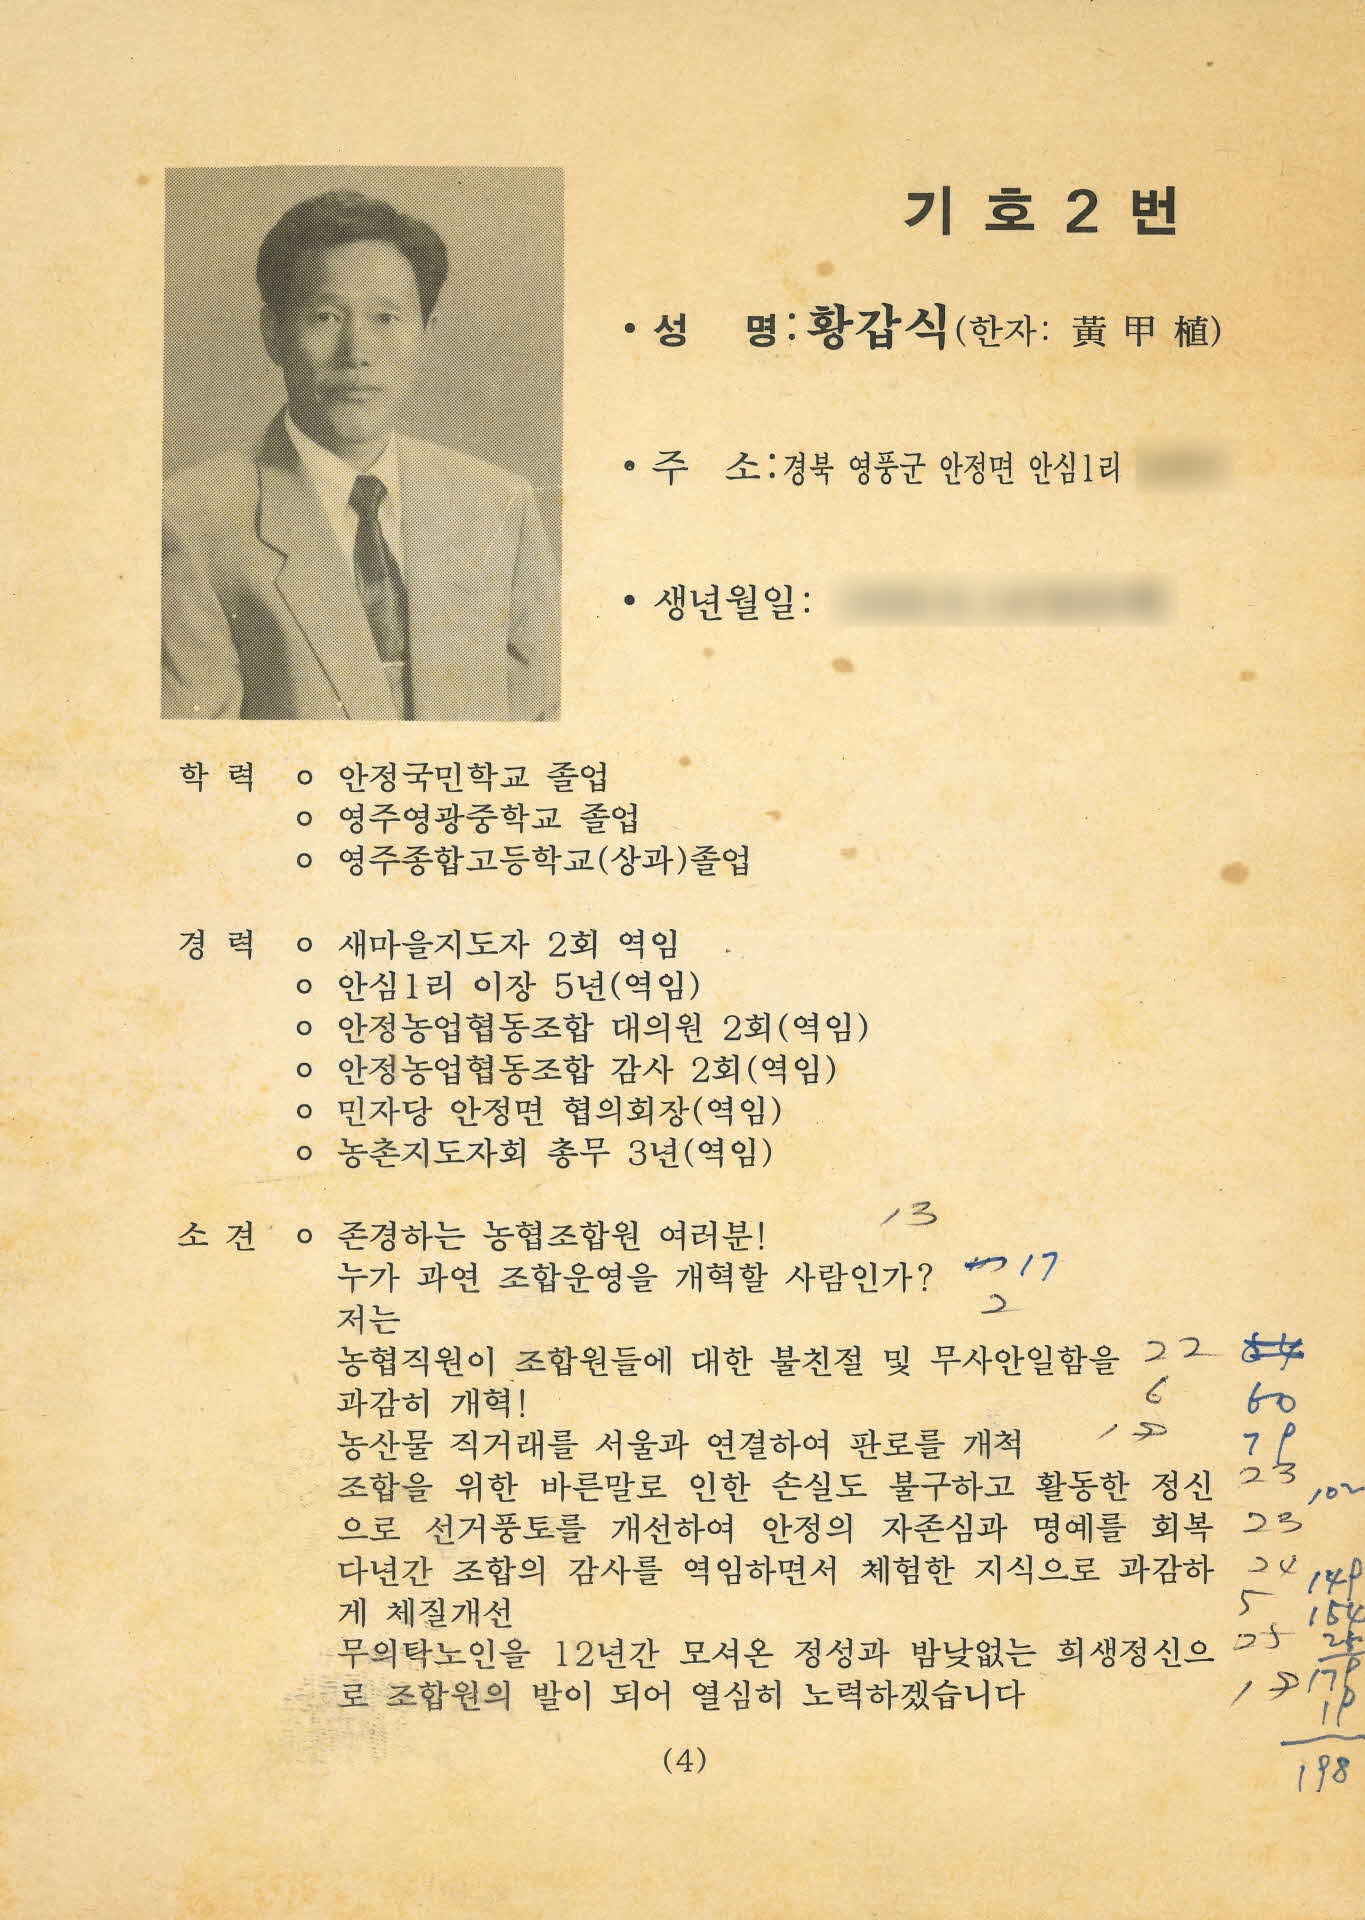 기 호 2 번
• 성 명 : 황갑식 (한자: 黃 甲 植)
• 주 소 : 경북 영풍군 안정면 안심1리
• 생년월일 :
학 력 ㅇ 안정국민학교 졸업
ㅇ 영주영광중학교 졸업
ㅇ 영주종합고등학교(상과)졸업
경 력 ㅇ 새마을지도자 2회 역임
ㅇ 안심1리 이장 5년(역임)
ㅇ 안정농업협동조합 대의원 2회(역임)
ㅇ 안정농업협동조합 감사 2회(역임)
ㅇ 민자당 안정면 협의회장(역임)
ㅇ 농촌지도자회 총무 3년(역임)
소 견 ㅇ 존경하는 농협조합원 여러분! 13
누가 과연 조합운영을 개혁할 사람인가? 17
저는 2
농협직원이 조합원들에 대한 불친절 및 무사안일함을 22
과감히 개혁! 6 60
농산물 직거래를 서울과 연결하여 판로를 개척 79
조합을 위한 바른말로 인한 손실도 불구하고 활동한 정신 23 102
으로 선거풍토를 개선하여 안정의 자존심과 명예를 회복 23
다년간 조합의 감사를 역임하면서 체험한 지식으로 과감하 24 149
게 체질개선 5 154
무의탁노인을 12년간 모셔온 정성과 밤낮없는 희생정신으 25 25
로 조합원의 발이 되어 열심히 노력하겠습니다 179
19
198
(4)